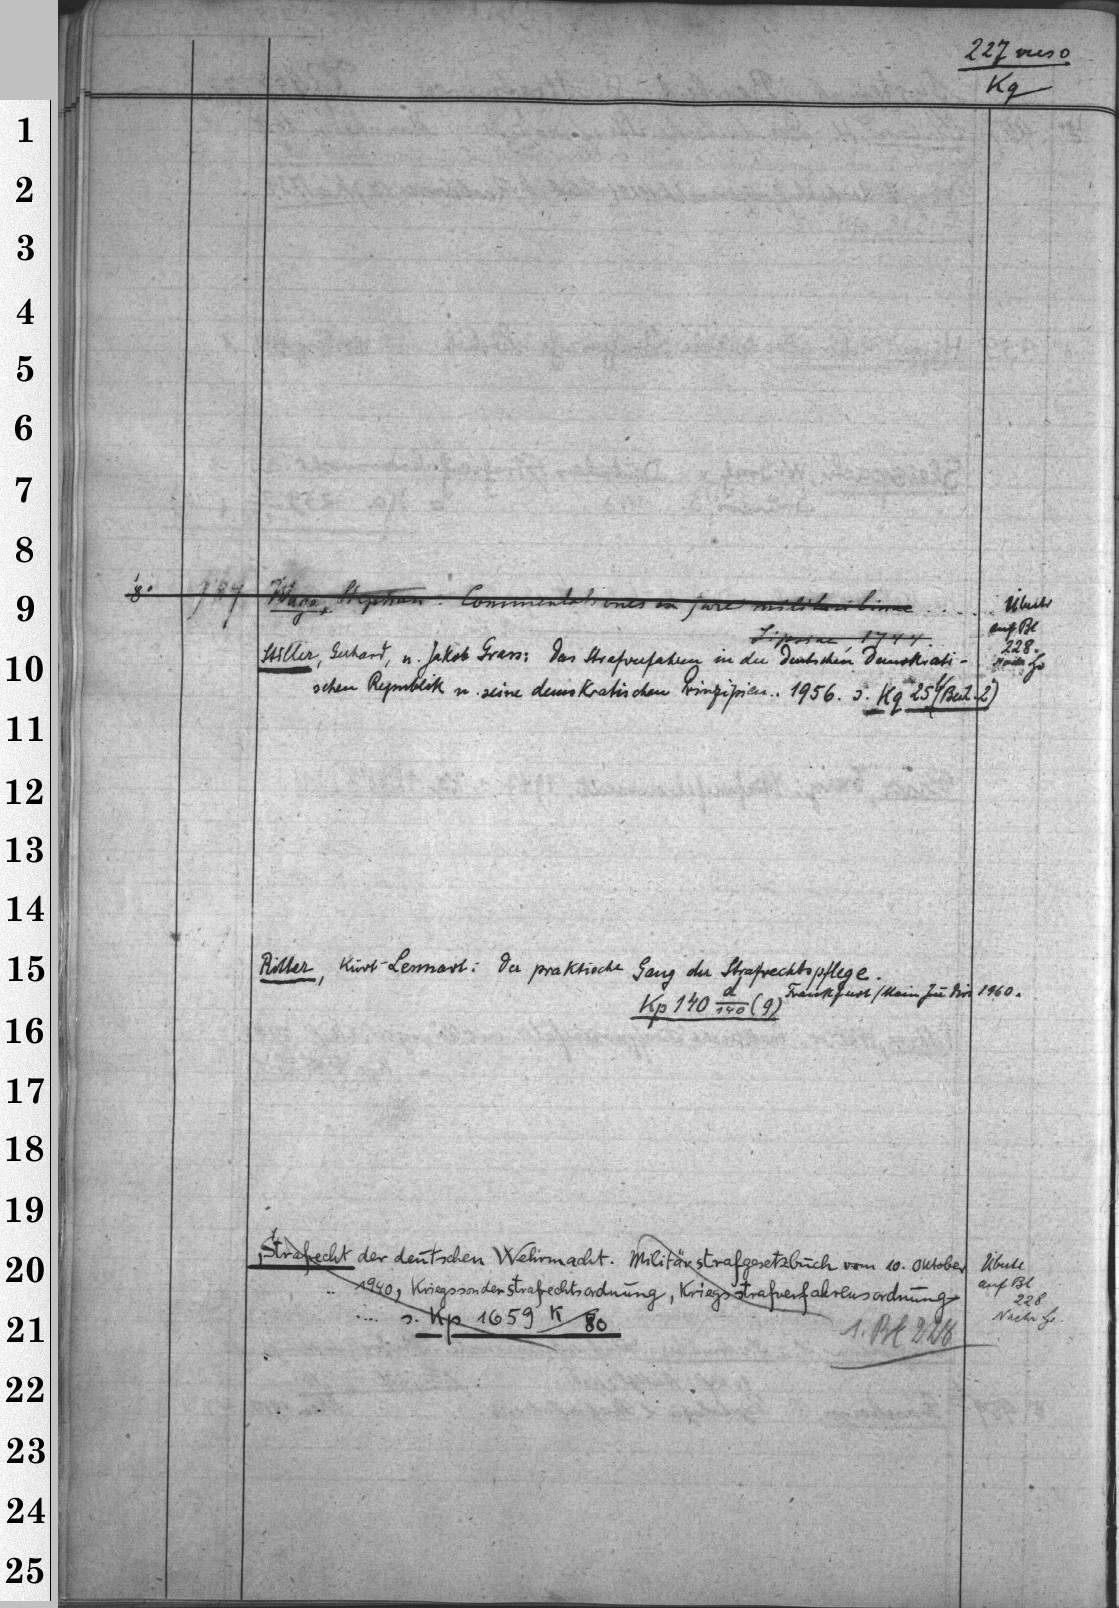 227 verso
Kg
1
2
3
4
5
6
7
8
9 8° 787 Waga, Stephan: Commentationes ex jure militari binae . . . . . Übertr
Lipsiae, 1744. auf Bl
228.
10 Stiller, Gerhard, u. Jakob Grass: Das Strafverfahren in der Deutschen Demokrati-
schen Republik u. seine demokratischen Prinzipien.. 1956. s. Kg 254 (Beil. 2)
11
12
13
14
15 Ritter, Kurt-Lennart: Der praktische Gang der Strafrechtspflege.
Frankfurt/Main 1960.
Kp 140 d/140 (9)
16
17
18
19
20 Strafrecht der deutschen Wehrmacht. Militärstrafgesetzbuch vom 10. Oktober Übertr
.. 1940, Kriegssonderstrafrechtsordnung, Kriegsstrafverfahrensordnung auf Bl
228
21 .... s. Kp 1659 K/80 s. Bl 228
22
23
24
25